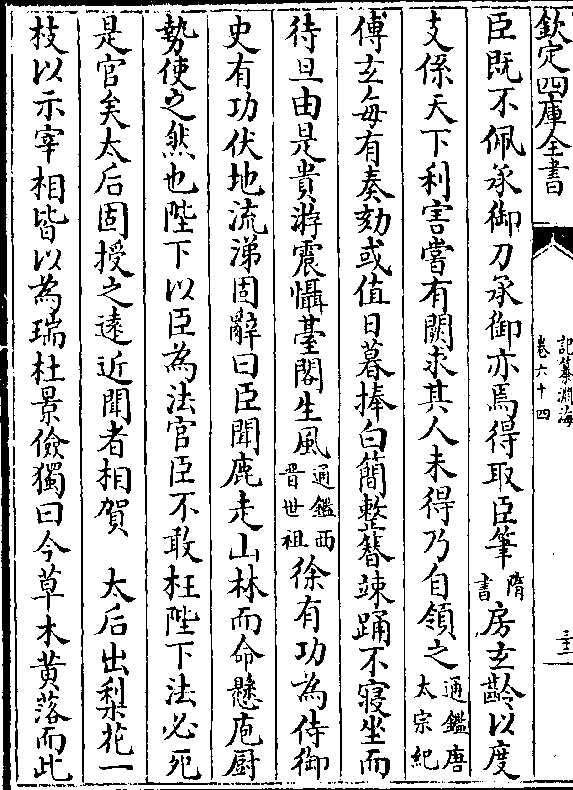 欽定四庫全書
記纂淵海
卷六十四
三十二
臣既不佩承御刀承御亦焉得取臣筆隋書房玄齡以度
支係天下利害嘗有闕求其人未得乃自領之通鑑唐太宗紀
傅玄每有奏劾或值日暮捧白簡整簪竦踊不寢坐而
待旦由是貴游震懾臺閣生風通鑑西晋世祖徐有功為侍御
史有功伏地流涕固辭曰臣聞鹿走山林而命懸庖厨
勢使之然也陛下以臣為法官臣不敢枉陛下法必死
是官矣太后固授之遠近聞者相賀　太后出梨花一
枝以示宰相皆以為瑞杜景儉獨曰今草木黄落而此